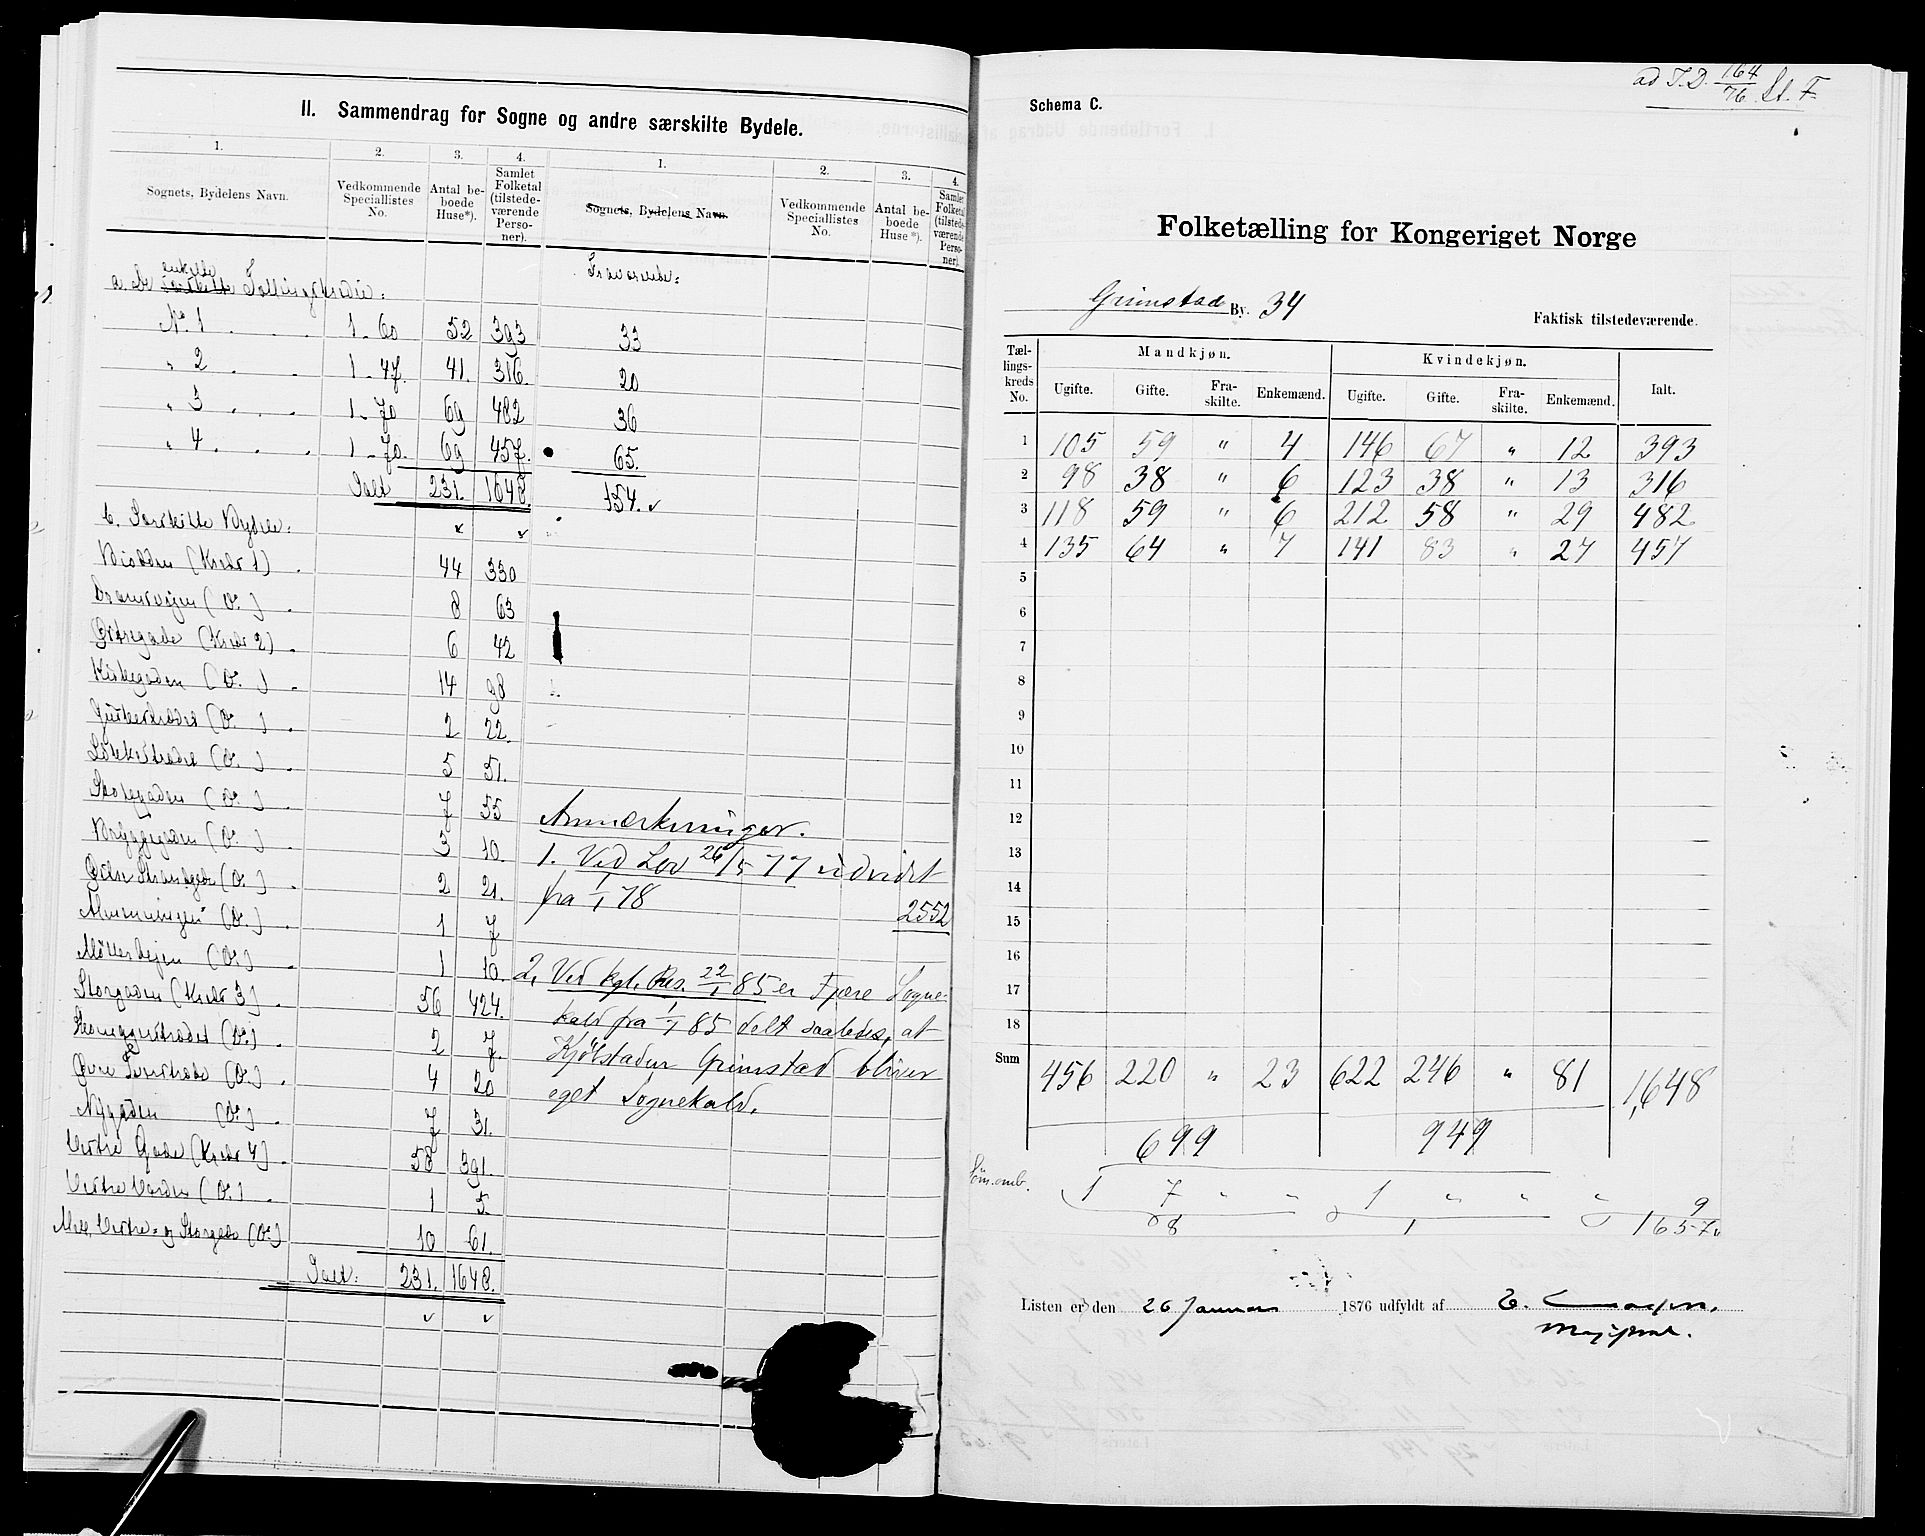 II. Sammendrag for Sogne og andre særskilte Bydele.
1. 2. 3. 4. 1. 2. 3. 4.
Sognets, Bydelens Navn. Vedkommende Speciallistes No. Antal beboede Huse*). Samlet Folketal (tilstedeværende Personer). Sognets, Bydelens Navn. Vedkommende Speciallistes No. Antal beboede Huse*). Samlet Folketal (tilstedeværende Personer).
a. De enkelte Tællingskredse: Fraværende:
No. 1 1-60 52 393 33
" 2 1-47. 41. 316. 20
" 3 1-70 69 482 36
" 4 1-70. 69 457. 65.
Ialt 231. 1648. 154.
b. Særskilte Bydele:
Biodden (Kreds 1) 44 330
(Do.) 8 63
Østregade (Kreds 2) 6 42
Kirkegaden (Do.) 14 98
(Do.) 2 22.
(Do.) 5 51.
Skolegaden (Do.) 7 55
Bryggegaden (Do.) 3 10.
Østre Strandgade (Do.) 2 21.
Almenningen (Do.) 1 7
Möllerveien (Do.) 1 10.
Storgaden (Kreds 3) 56 424.
(Do.) 2 7.
Øvre (Do.) 4 20
Nygaden (Do.) 7 31.
Vestre Gade (Kreds 4) 58 391.
Vestre Varden (Do.) 1 5
Mell. Vestre- og Storgade (Do.) 10 61.
Ialt: 231. 1648.
Anmærkninger.
1. Ved Lov 26/5 77 udvidet
fra 1/1 78 2552
2. Ved kgl. Res. 22/1 85 er Fjære Sogne-
kald fra 1/1 85 delt saaledes, at
Kjøbstaden Grimstad bliver
eget Sognekald.
ad T.D. 164/76 St. F.
Schema C.
Folketælling for Kongeriget Norge
Grimstad By. 34
Faktisk tilstedeværende.
Tællingskreds No. Mandkjøn. Kvindekjøn. Ialt.
Ugifte. Gifte. Fraskilte. Enkemænd. Ugifte. Gifte. Fraskilte. Enkemænd.
1 105 59 " 4 146 67 " 12 393
2 98 38 " 6 123 38 " 13 316
3 118 59 " 6 212 58 " 29 482
4 135 64 " 7 141 83 " 27 457
5
6
7
8
9
10
11
12
13
14
15
16
17
18
Sum 456 220 " 23 622 246 " 81 1,648
699 949
Söm. omb. 1 7 " " 1 " " " 9
8 1 1657
Listen er den 26 Januar 1876 udfyldt af